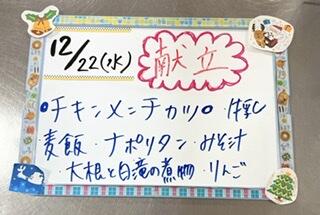 12/22(水) 献立
○チキンメンチカツ○ ・牛乳
・麦飯 ・ナポリタン ・みそ汁
・大根と白滝の煮物 ・りんご